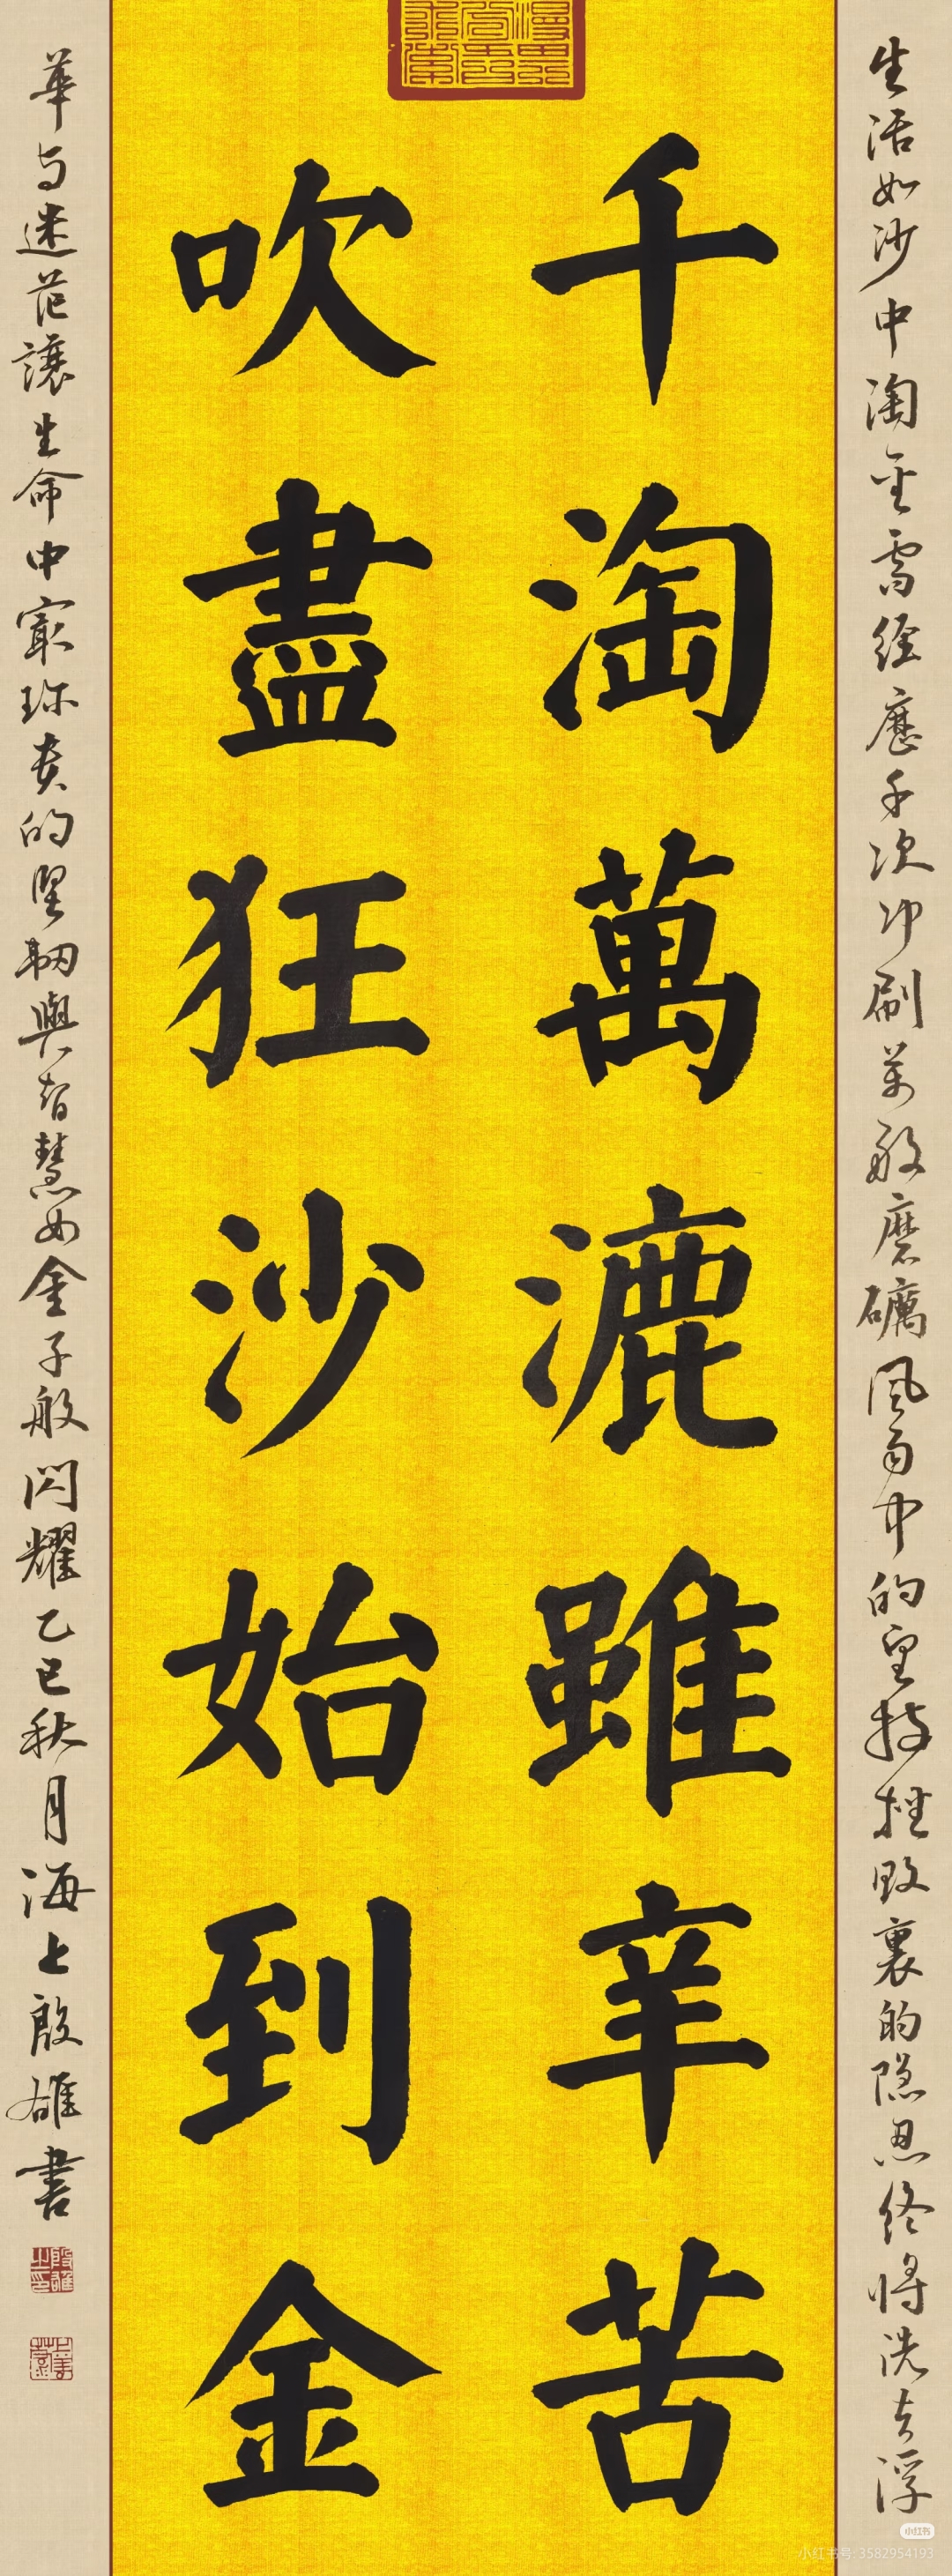 千淘萬漉雖辛苦
吹盡狂沙始到金
生活如沙中淘金需經歷千次冲刷萬般磨礪風雨中的堅持挫敗裏的隱忍終將洗去浮
華与迷茫讓生命中最珍贵的堅韌與智慧如金子般閃耀乙巳秋月海上殷雄書
小红书
小红书号: 3582954193